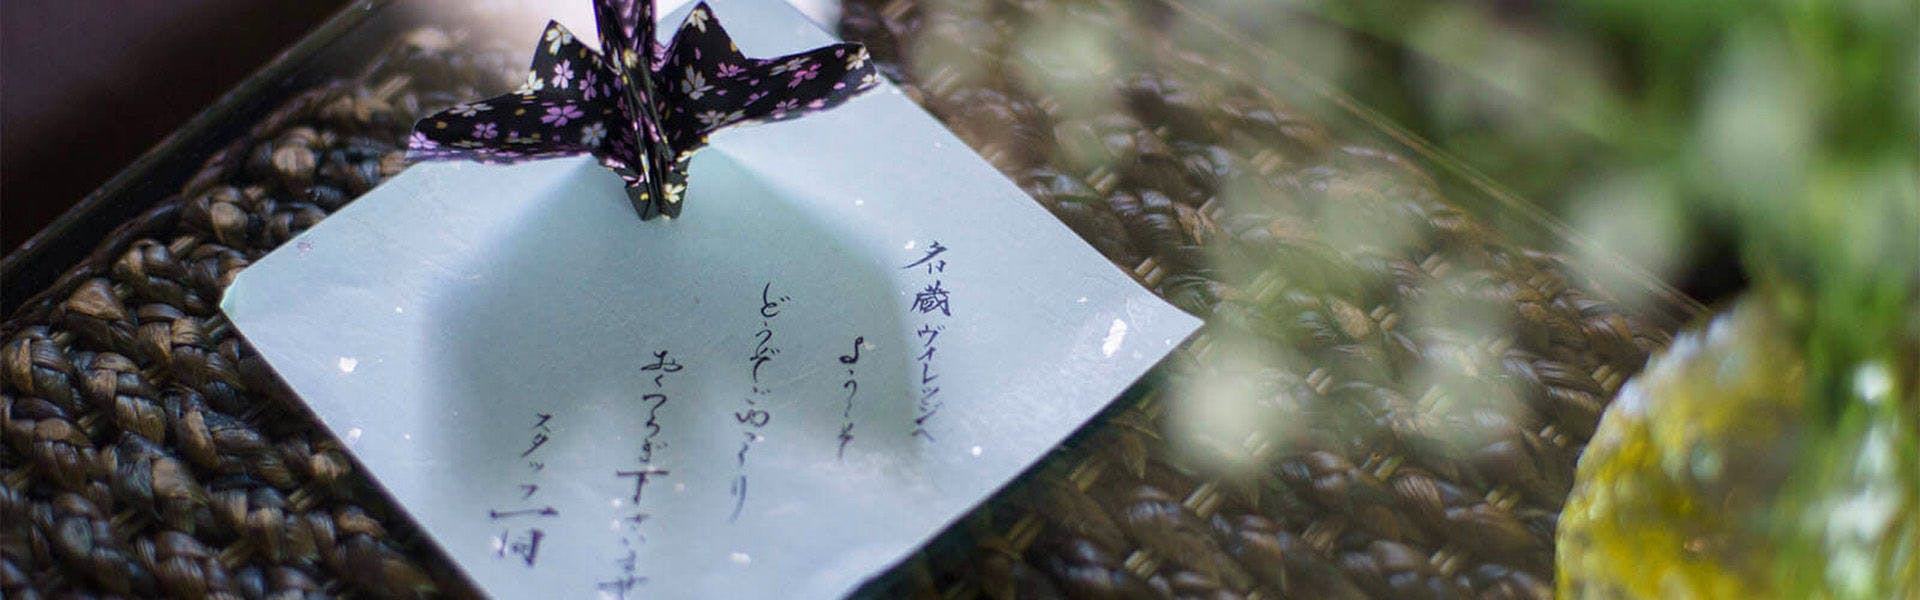 名蔵ヴィレッジへ
ようこそ
どうぞごゆるり
おくつろぎ下さいませ
スタッフ一同